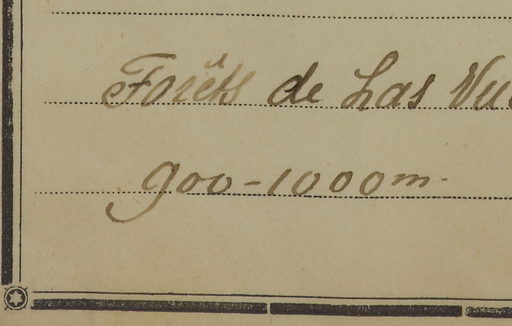 Forêts de Las
900-1000m.